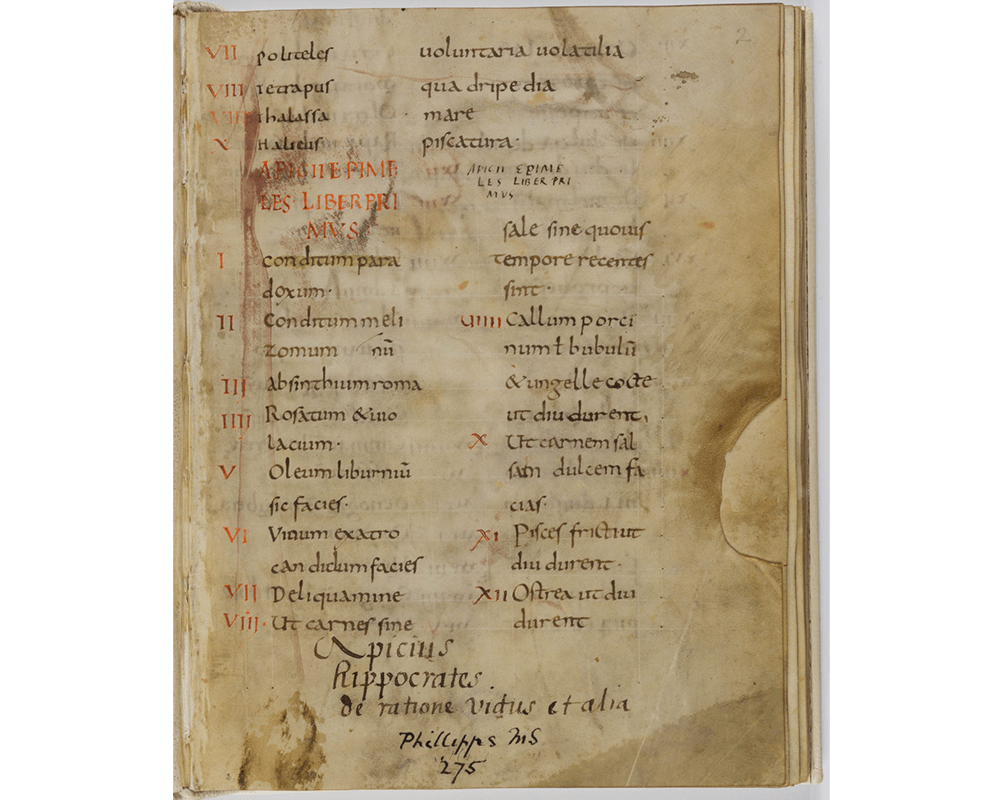 VII politeles uoluntaria uolatilia
VIII tetrapus quadripedia
thalassa mare
X Halieus piscatura·
APICII EPIME
LES LIBER PRI
MVS
APICII EPIME
LES LIBER PRI
MVS
I conditum para
doxum·
II Conditum meli
zomum nū
III absinthium roma
IIII Rosatum & uio
lacium·
V Oleum liburniū
sic facies·
VI Vinum ex atro
candidum facies
VII De liquamine
VIII· Ut carnes sine
sale sine quouis
tempore recentes
sint·
VIIII Callum porci
num ł bubulū
& ungelle cocte
ut diu durent,
X Ut carnem sal
sam dulcem fa
cias·
XI Pisces fricti ut
diu durent·
XII Ostrea ut diu
durent
Apicius
hippocrates.
de ratione victus et alia
Phillipps MS
275
2